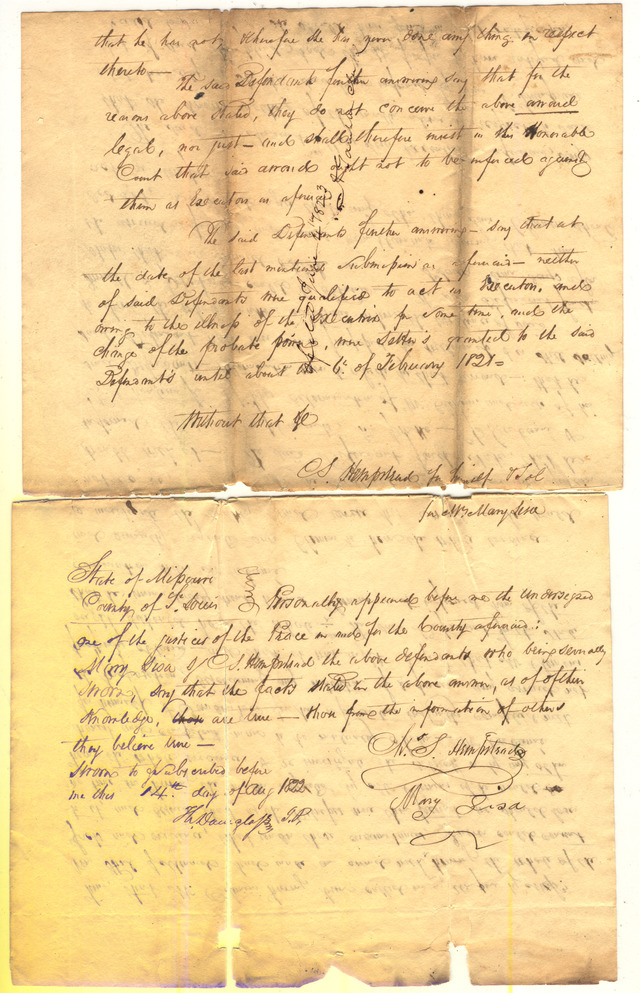 that he has not, therefore she has never done any thing in respect
thereto—
The said Defendants further answering say that for the
reasons above stated, they do not conceive the above award
legal, nor just— and shall therefore insist in this Honorable
Court that said award ought not to be enforced against
them as Executors as aforesaid
The said Defendants further answering— say that at
the date of the last mentioned submission as aforesaid— neither
of said Defendants were qualified to act as Executors, and
owing to the illness of the Executrix for some time, and the
change of the probate power, were Letters granted to the said
Defendants until about the 6th of February 1821—
Without that &c
C. S. Hempstead for himself & Sol.
for Mrs Mary Lisa
State of Missouri
County of St. Louis
Personally appeared before me the undersigned
one of the justices of the Peace in and for the County aforesaid:
Mary Lisa & C. S. Hempstead the above defendants who being severally
sworn, say that the facts stated in the above answer, as of their
knowledge, are true— those from the information of others
they believe true—
Sworn to & subscribed before
me this 14th day of Aug 1822
H. Douglass J.P.
Chs. S. Hempstead
Mary Lisa